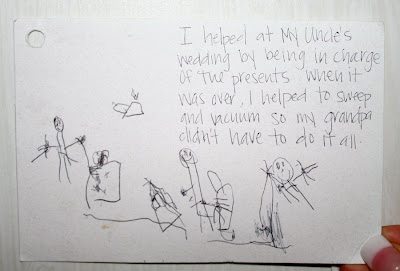 I helped at My Uncle's
wedding by being in charge
of the presents. When it
was over, I helped to sweep
and vacuum so my grandpa
didn't have to do it all.